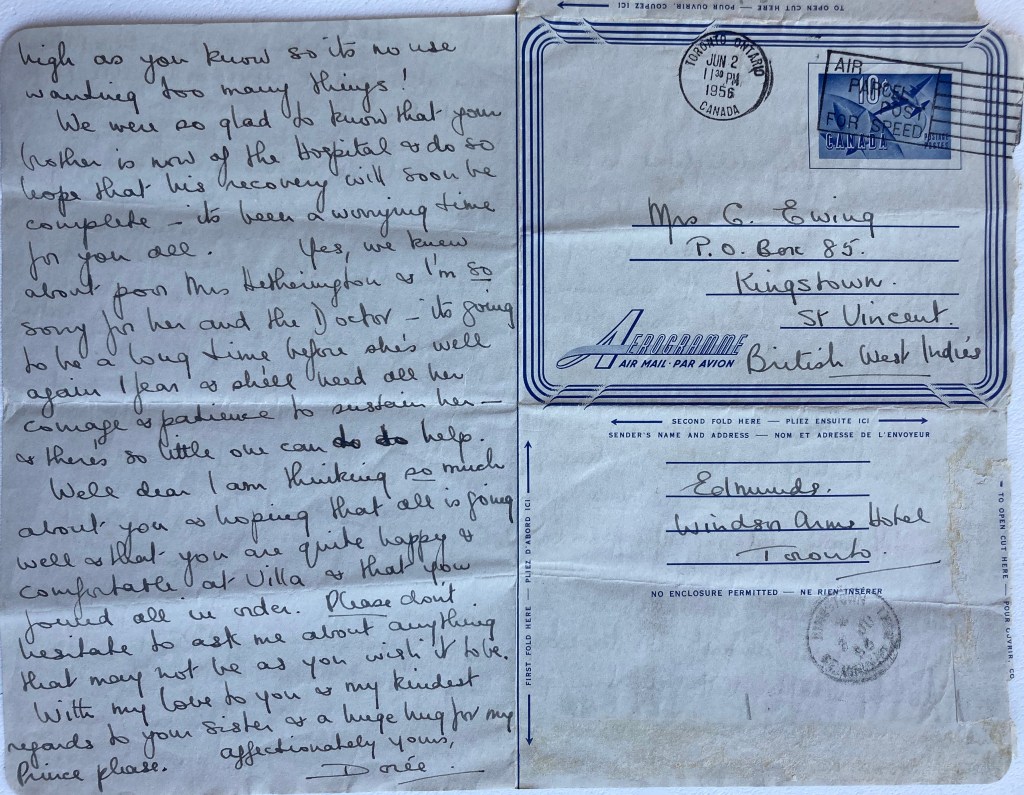 high as you know so its no use
wanting too many things!
We were so glad to know that your
brother is now of the Hospital & do so
hope that his recovery will soon be
complete – its been a worrying time
for you all. Yes, we knew
about poor Mrs Hetherington & I'm so
sorry for her and the Doctor – its going
to be a long time before she's well
again I fear & she'll need all her
courage & patience to sustain her –
& there's so little one can do to help.
Well dear I am thinking so much
about you & hoping that all is going
well & that you are quite happy &
comfortable at Villa & that you
found all in order. Please don't
hesitate to ask me about anything
that may not be as you wish it to be.
With my love to you & my kindest
regards to your sister & a huge hug for my
Prince please. affectionately yours,
Dorée
TO OPEN CUT HERE — POUR OUVRIR, COUPEZ ICI
TORONTO ONTARIO
JUN 2
11 30 PM
1956
CANADA
AIR
PARCEL
POST
FOR SPEED
10¢
CANADA
POSTAGE
POSTES
Mrs G. Ewing
P.O. Box 85.
Kingstown.
St Vincent.
British West Indies
AEROGRAMME
AIR MAIL · PAR AVION
SECOND FOLD HERE — PLIEZ ENSUITE ICI
SENDER'S NAME AND ADDRESS — NOM ET ADRESSE DE L'ENVOYEUR
Edmunds.
Windsor Arms Hotel
Toronto.
NO ENCLOSURE PERMITTED — NE RIEN INSÉRER
FIRST FOLD HERE — PLIEZ D'ABORD ICI
TO OPEN CUT HERE — POUR OUVRIR, CO